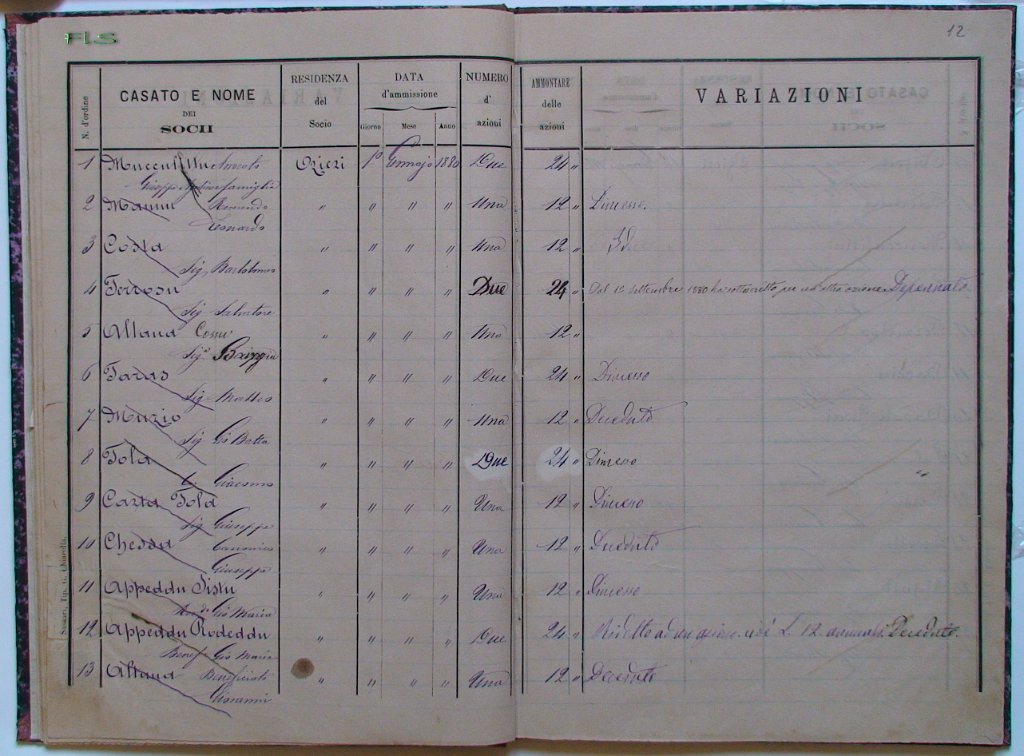 FLS
12
N. d'ordine
CASATO E NOME
DEI
SOCII
RESIDENZA
del
Socio
DATA
d'ammissione
Giorno Mese Anno
NUMERO
d'
azioni
AMMONTARE
delle
azioni
VARIAZIONI
1 Ozieri 1° Gennajo 1880 Due 24 "
Giuseppe famiglia
2 Mannu " " " " Una 12 " Dimesso.
Leonardo
3 Costa " " " " Una 12 " Id
Sig. Bartolomeo
4 Terrosu " " " " Due 24 " Dal 1° settembre 1880 ha sottoscritto per un'altra azione. Depennato
Sig. Salvatore
5 Altana Cossu " " " " Una 12 "
Sig.
6 Taras " " " " Due 24 " Dimesso
Sig. Matteo
7 Muzio " " " " Una 12 " Deceduto
Sig. Gio Batta
8 Tola " " " " Due 24 " Dimesso
Giacomo
9 Carta Tola " " " " Una 12 " Dimesso
Sig. Giuseppe
10 Chessa Canonico " " " " Una 12 " Deceduto
Giuseppe
11 Appeddu Sistu " " " " Una 12 " Dimesso
Gio Maria
12 Appeddu Rodeddu " " " " Due 24 " Ridotto ad un azione L. 12 Deceduto.
Benef. Gio Maria
13 Altana Beneficiato " " " " Una 12 " Deceduto
Giovanni